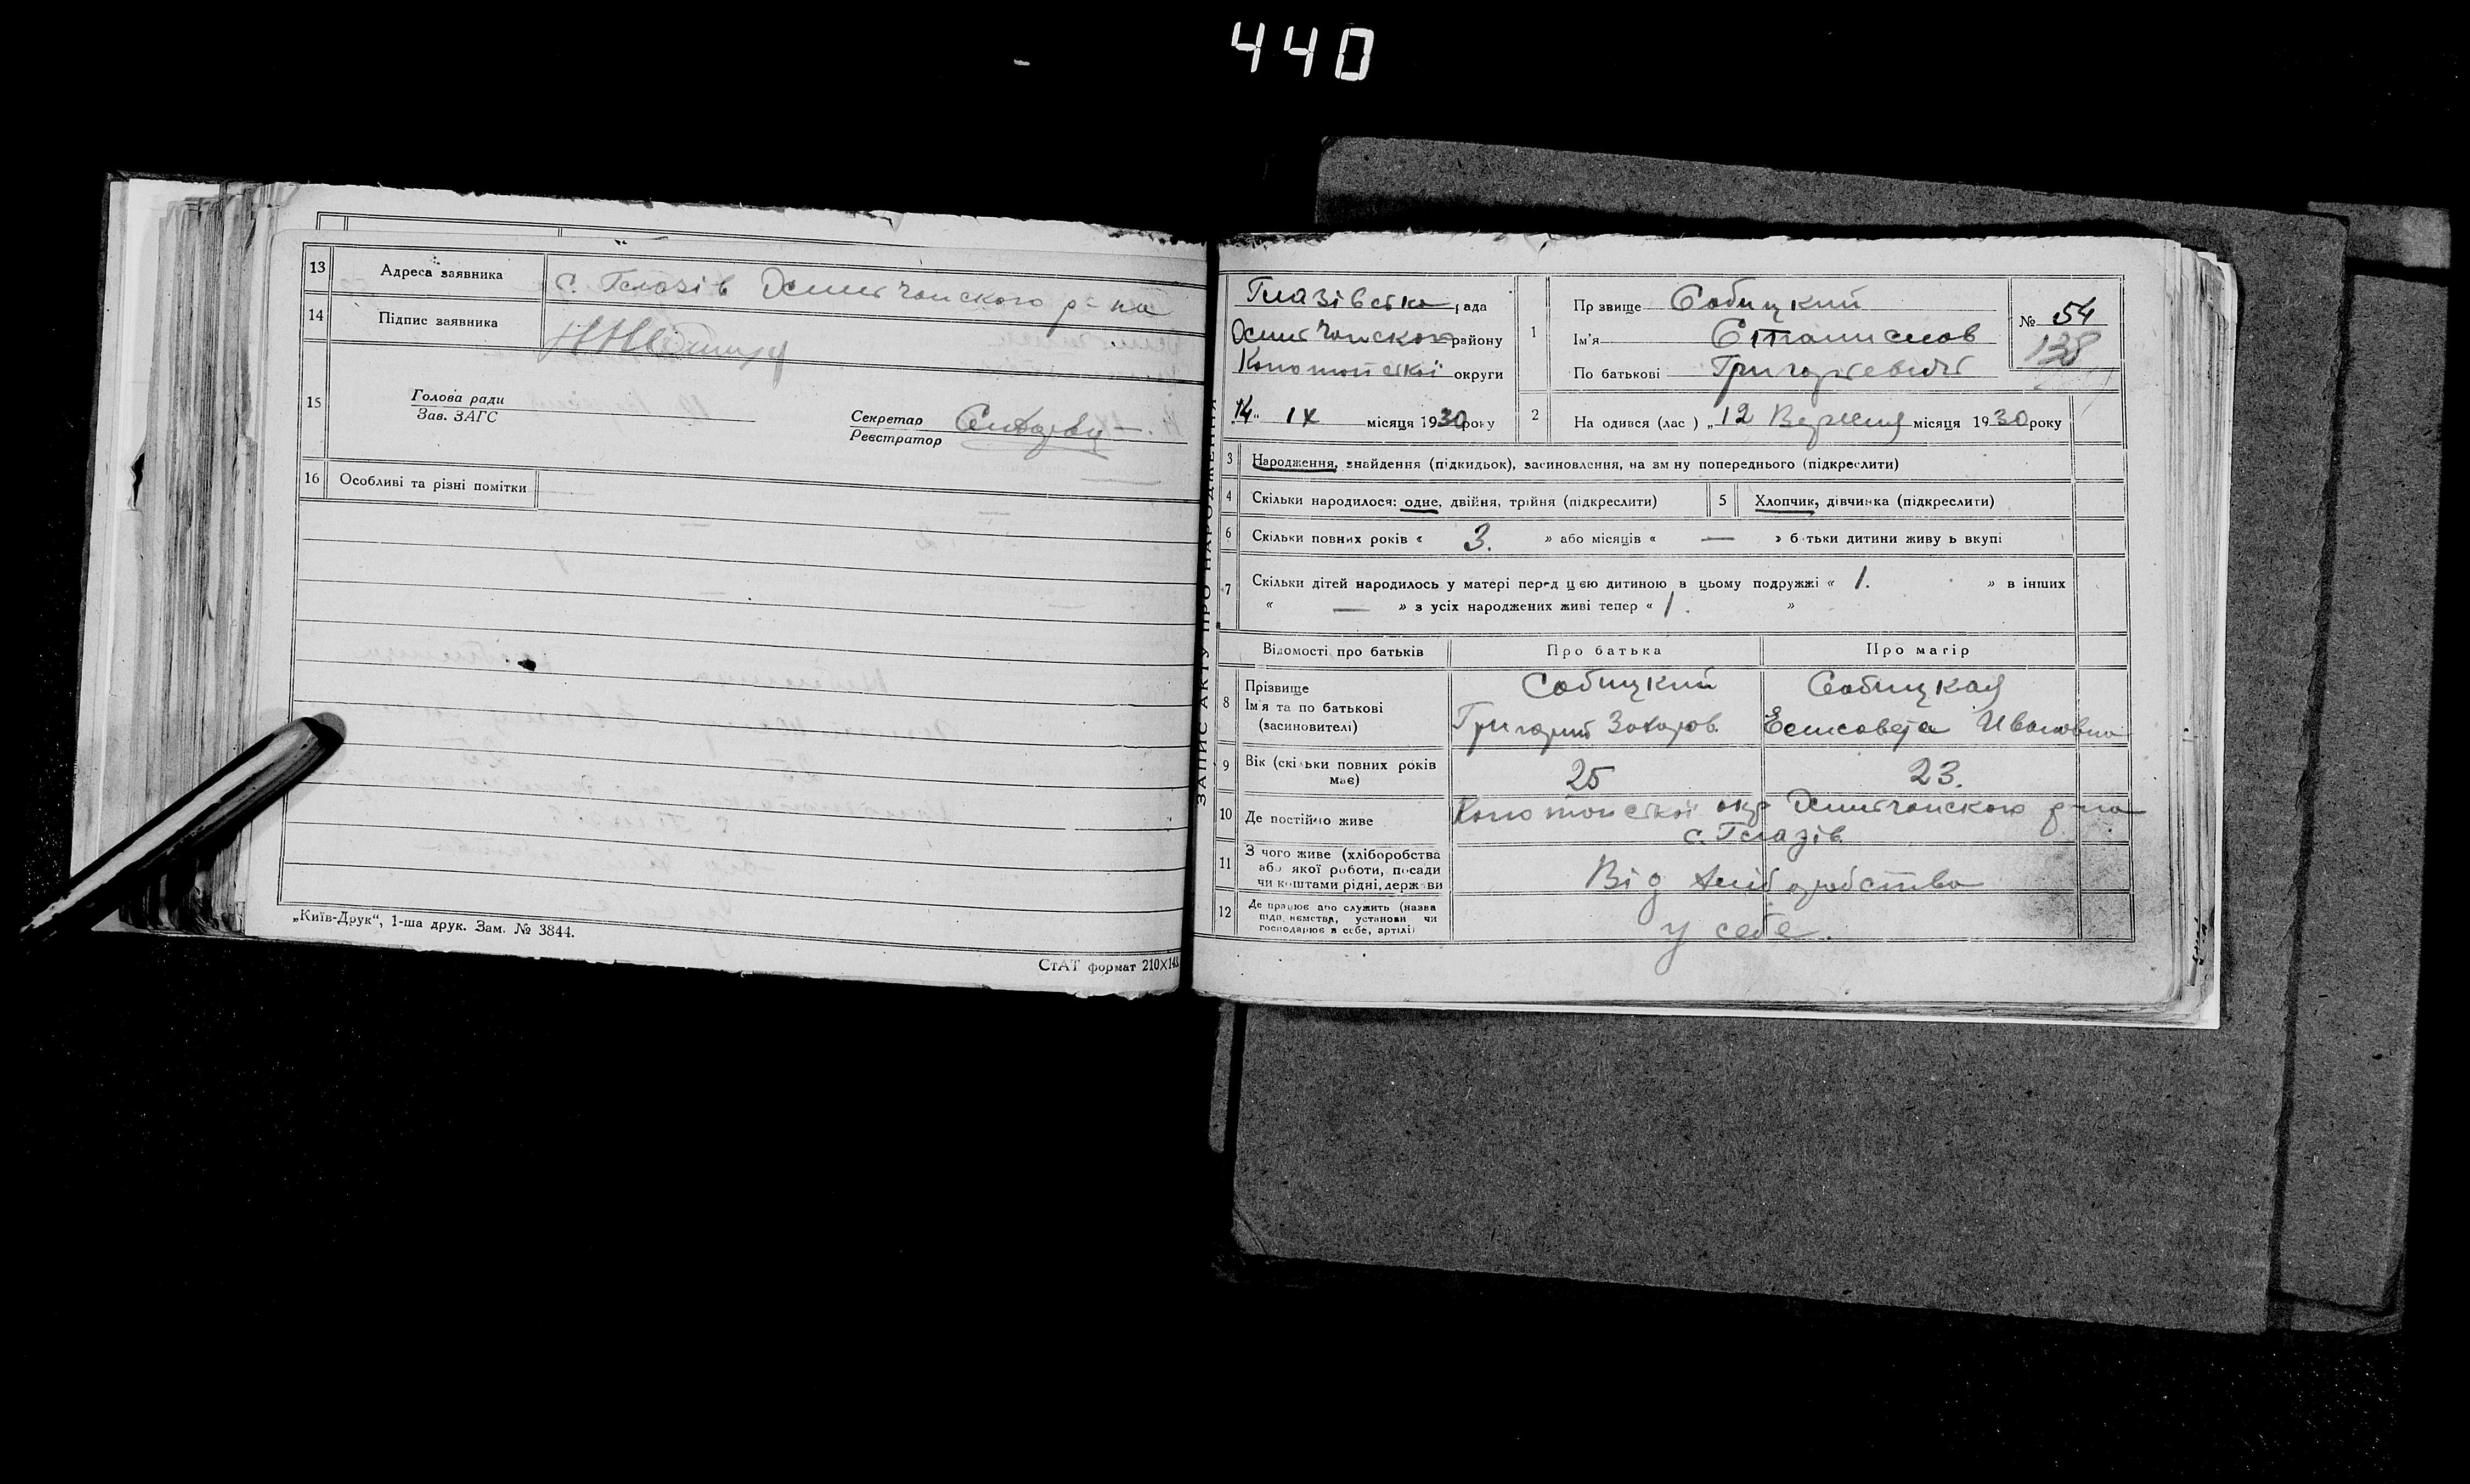 440
13 Адреса заявника с. Глазів Ямпольского р-на
14 Підпис заявника
15 Голова ради
Зав. ЗАГС
Секретар
Реєстратор
16 Особливі та різні помітки
„Київ-Друк“, 1-ша друк. Зам. № 3844.
СтАТ формат 210×148
ЗАПИС АКТУ ПРО НАРОДЖЕННЯ
Глазівська рада
району
Конотопської округи
„14“ IX місяця 1930 року
1 Пр звище Собицкий
Ім'я Станислов
По батькові Григорьевич
№ 54
138
2 На одився (лас ) „12 Вересня місяця 1930 року
3 Народження, знайдення (підкидьок), засиновлення, на зм ну попереднього (підкреслити)
4 Скільки народилося: одне, двійня, трійня (підкреслити) 5 Хлопчик, дівчинка (підкреслити)
6 Скільки повних років « 3. » або місяців « — » б тьки дитини живу ь вкупі
7 Скільки дітей народилось у матері перед цією дитиною в цьому подружжі « 1. » в інших
« — » з усіх народжених живі тепер « 1. »
Відомості про батьків Про батька Про матір
8 Прізвище Собицкий Собицкая
Ім'я та по батькові Григорий Захаров. Елисовета Ивановна
(засиновителі)
9 Вік (скільки повних років має) 25 23.
10 Де постійно живе Конотопської окр р-на
с. Глазів
11 З чого живе (хліборобства
або якої роботи, посади Від хліборобства
чи коштами рідні, держави
12 Де працює або служить (назва
підп, иємства, установи чи у себе.
господарює в себе, артілі)